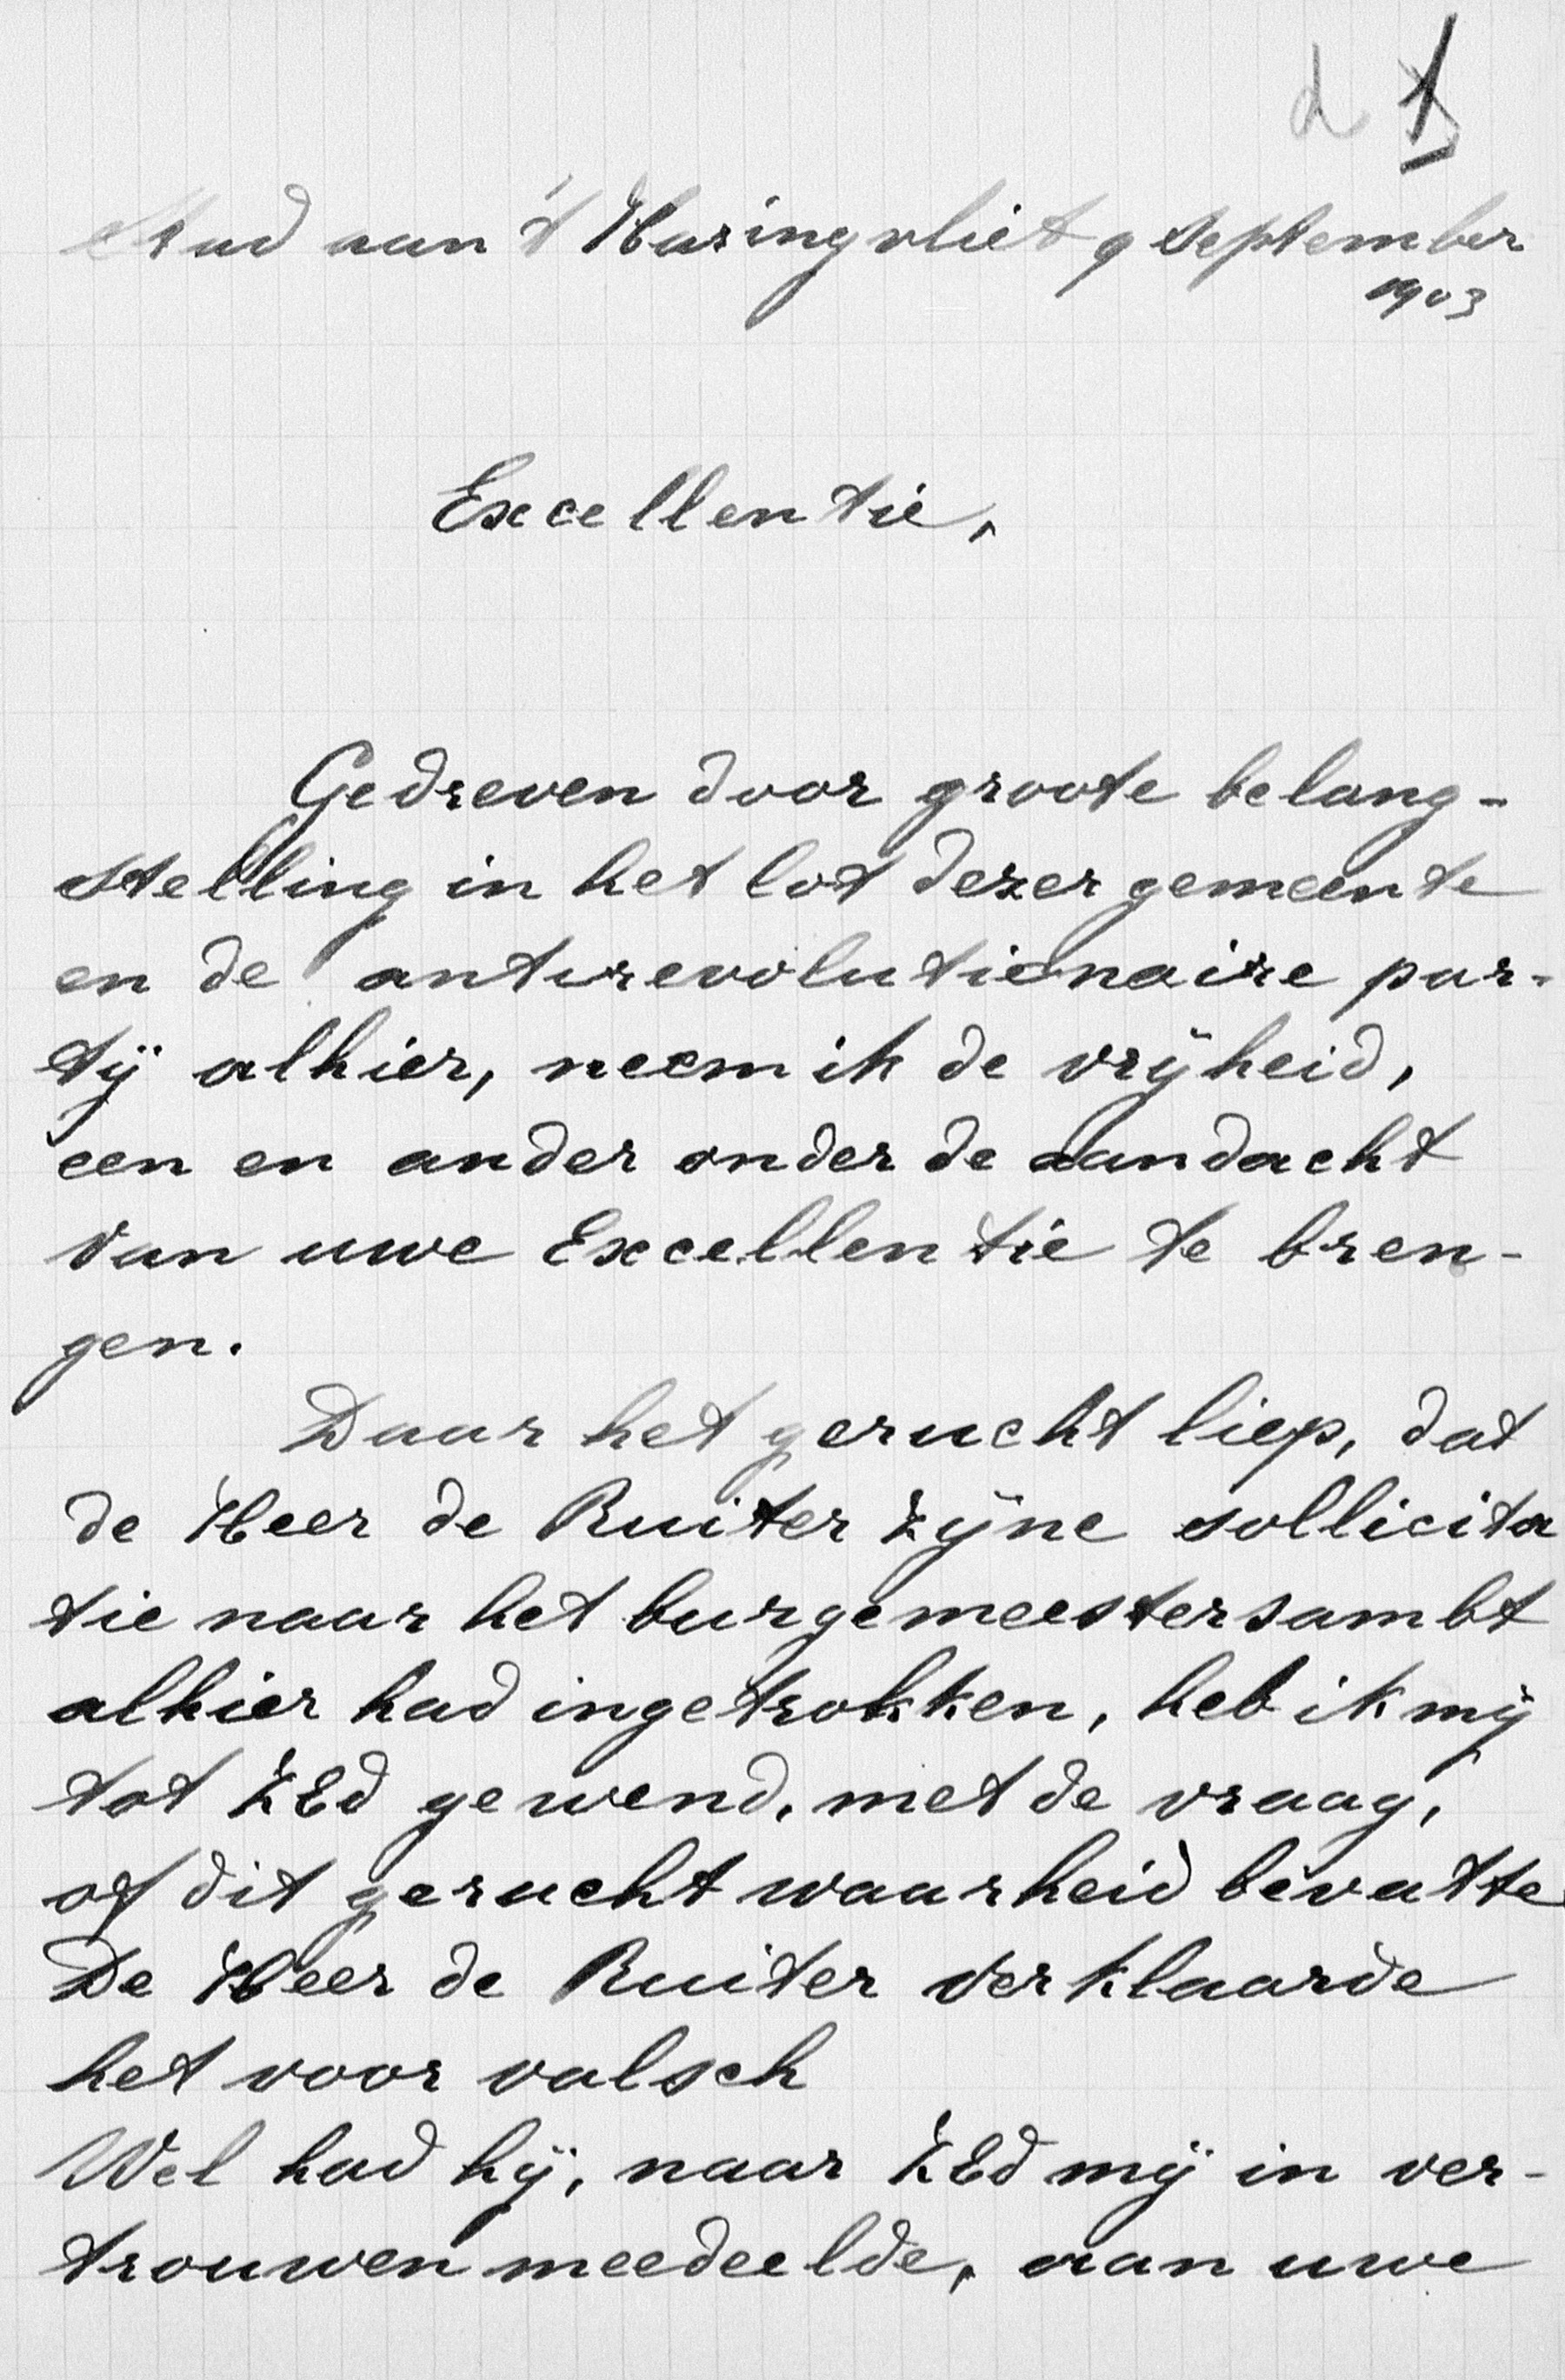 d 1
Stad aan 't Haringvliet 9 September
1903
Excellentie,
Gedreven door groote belang-
stelling in het lot dezer gemeente
en de antirevolutionaire par-
tij alhier, neem ik de vrijheid,
een en ander onder de aandacht
van uwe Excellentie te bren-
gen.
Daar het gerucht liep, dat
de Heer de Ruiter zijne sollicita
tie naar het burgemeestersambt
alhier had ingetrokken, heb ik mij
tot ZEd gewend, met de vraag,
of dit gerucht waarheid bevatte
De Heer de Ruiter verklaarde
het voor valsch
Wel had hij, naar ZEd mij in ver-
trouwen meedeelde, aan uwe